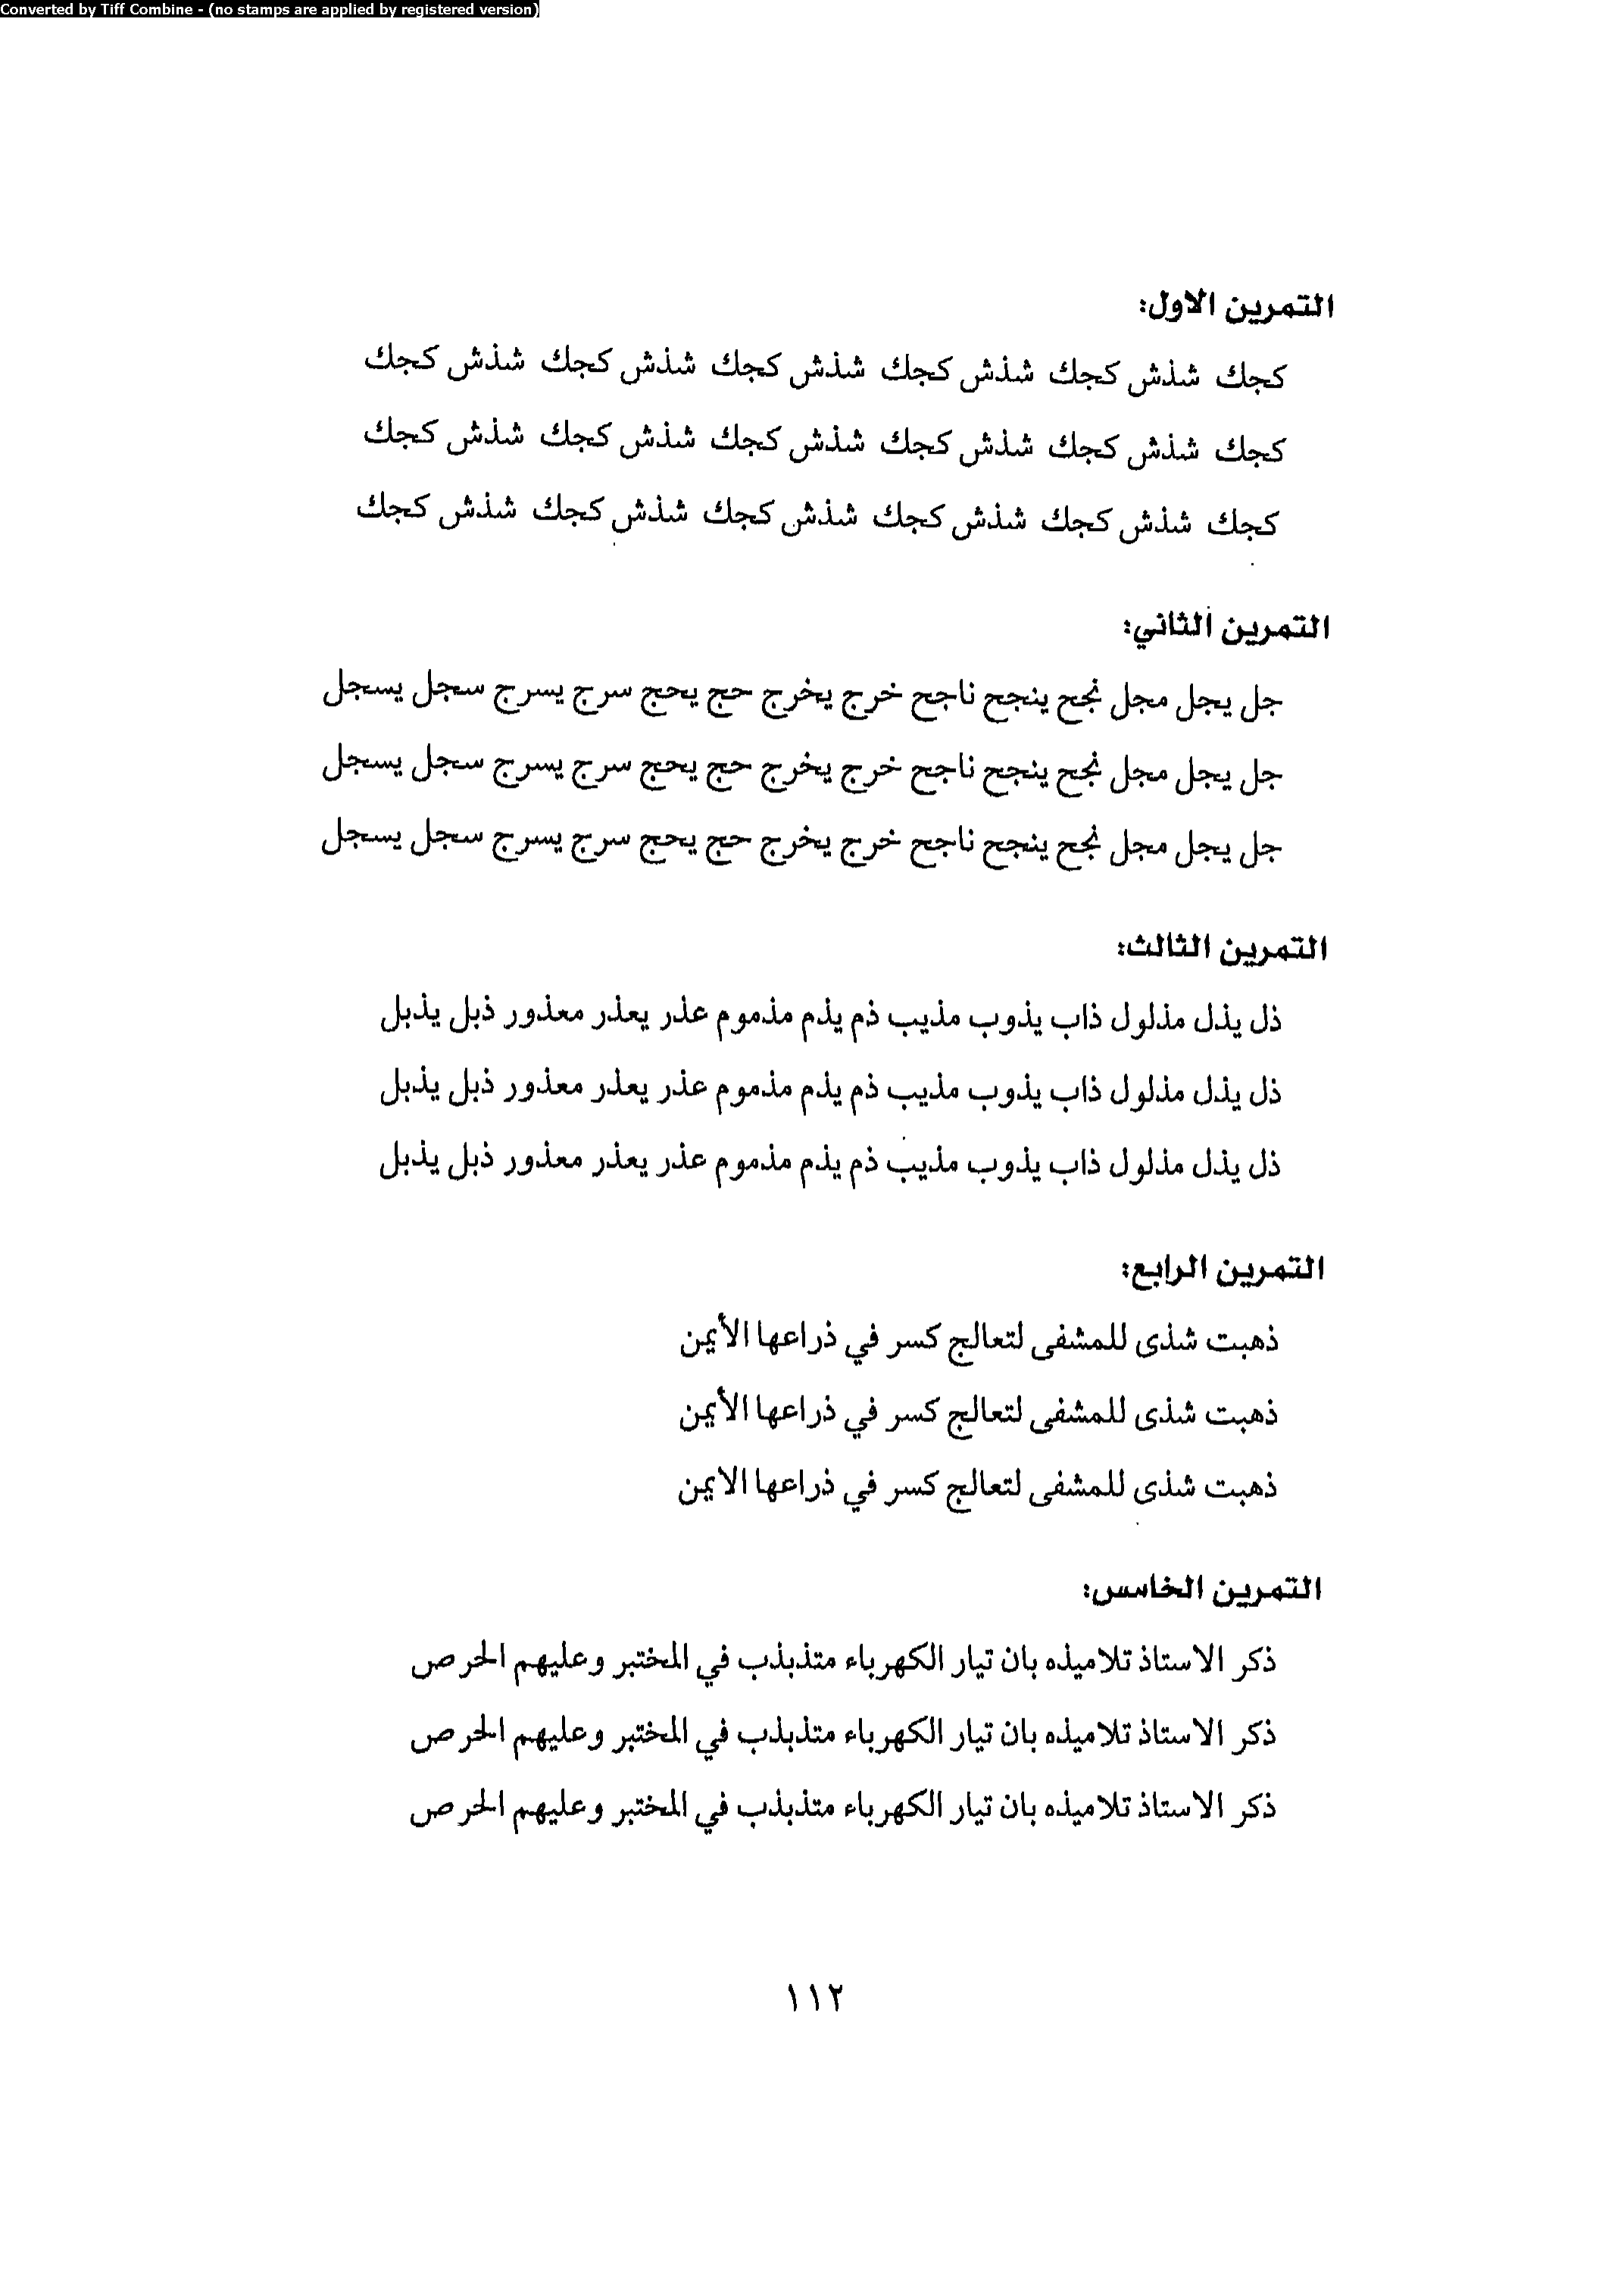 Converted by Tiff Combine - (no stamps are applied by registered version)
التمرين الاول:
كجك شذش كجك شذش كجك شذش كجك شذش كجك شذش كجك
كجك شذش كجك شذش كجك شذش كجك شذش كجك شذش كجك
كجك شذش كجك شذش كجك شذش كجك شذش كجك شذش كجك
التمرين الثاني:
جل يجل مجل نجح ينجح ناجح خرج يخرج حج يحج سرج يسرج سجل يسجل
جل يجل مجل نجح ينجح ناجح خرج يخرج حج يحج سرج يسرج سجل يسجل
جل يجل مجل نجح ينجح ناجح خرج يخرج حج يحج سرج يسرج سجل يسجل
التمرين الثالث:
ذل يذل مذلول ذاب يذوب مذيب ذم يذم مذموم عذر يعذر معذور ذبل يذبل
ذل يذل مذلول ذاب يذوب مذيب ذم يذم مذموم عذر يعذر معذور ذبل يذبل
ذل يذل مذلول ذاب يذوب مذيب ذم يذم مذموم عذر يعذر معذور ذبل يذبل
التمرين الرابع:
ذهبت شذى للمشفى لتعالج كسر في ذراعها الأيمن
ذهبت شذى للمشفى لتعالج كسر في ذراعها الأيمن
ذهبت شذى للمشفى لتعالج كسر في ذراعها الايمن
التمرين الخامس:
ذكر الاستاذ تلاميذه بان تيار الكهرباء متذبذب في المختبر وعليهم الحرص
ذكر الاستاذ تلاميذه بان تيار الكهرباء متذبذب في المختبر وعليهم الحرص
ذكر الاستاذ تلاميذه بان تيار الكهرباء متذبذب في المختبر وعليهم الحرص
١١٢